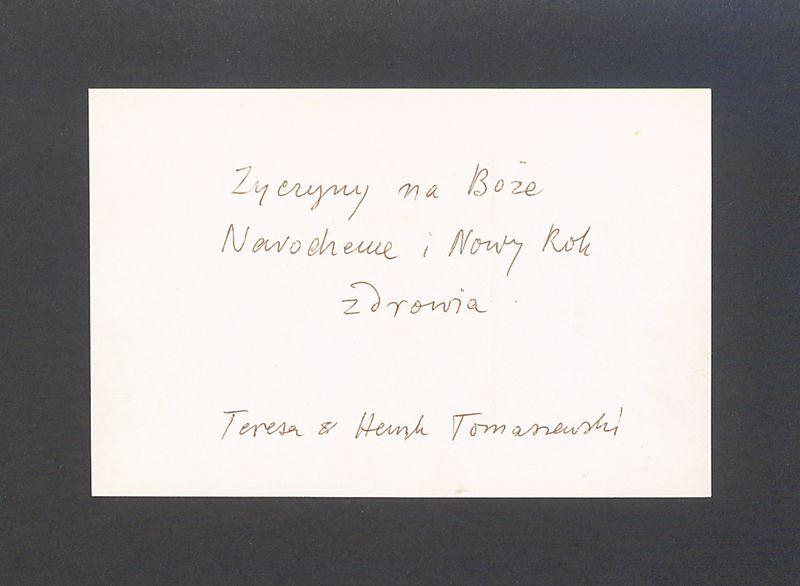 Życzymy na Boże
Narodzenie i Nowy Rok
zdrowia
Teresa & Henryk Tomaszewski